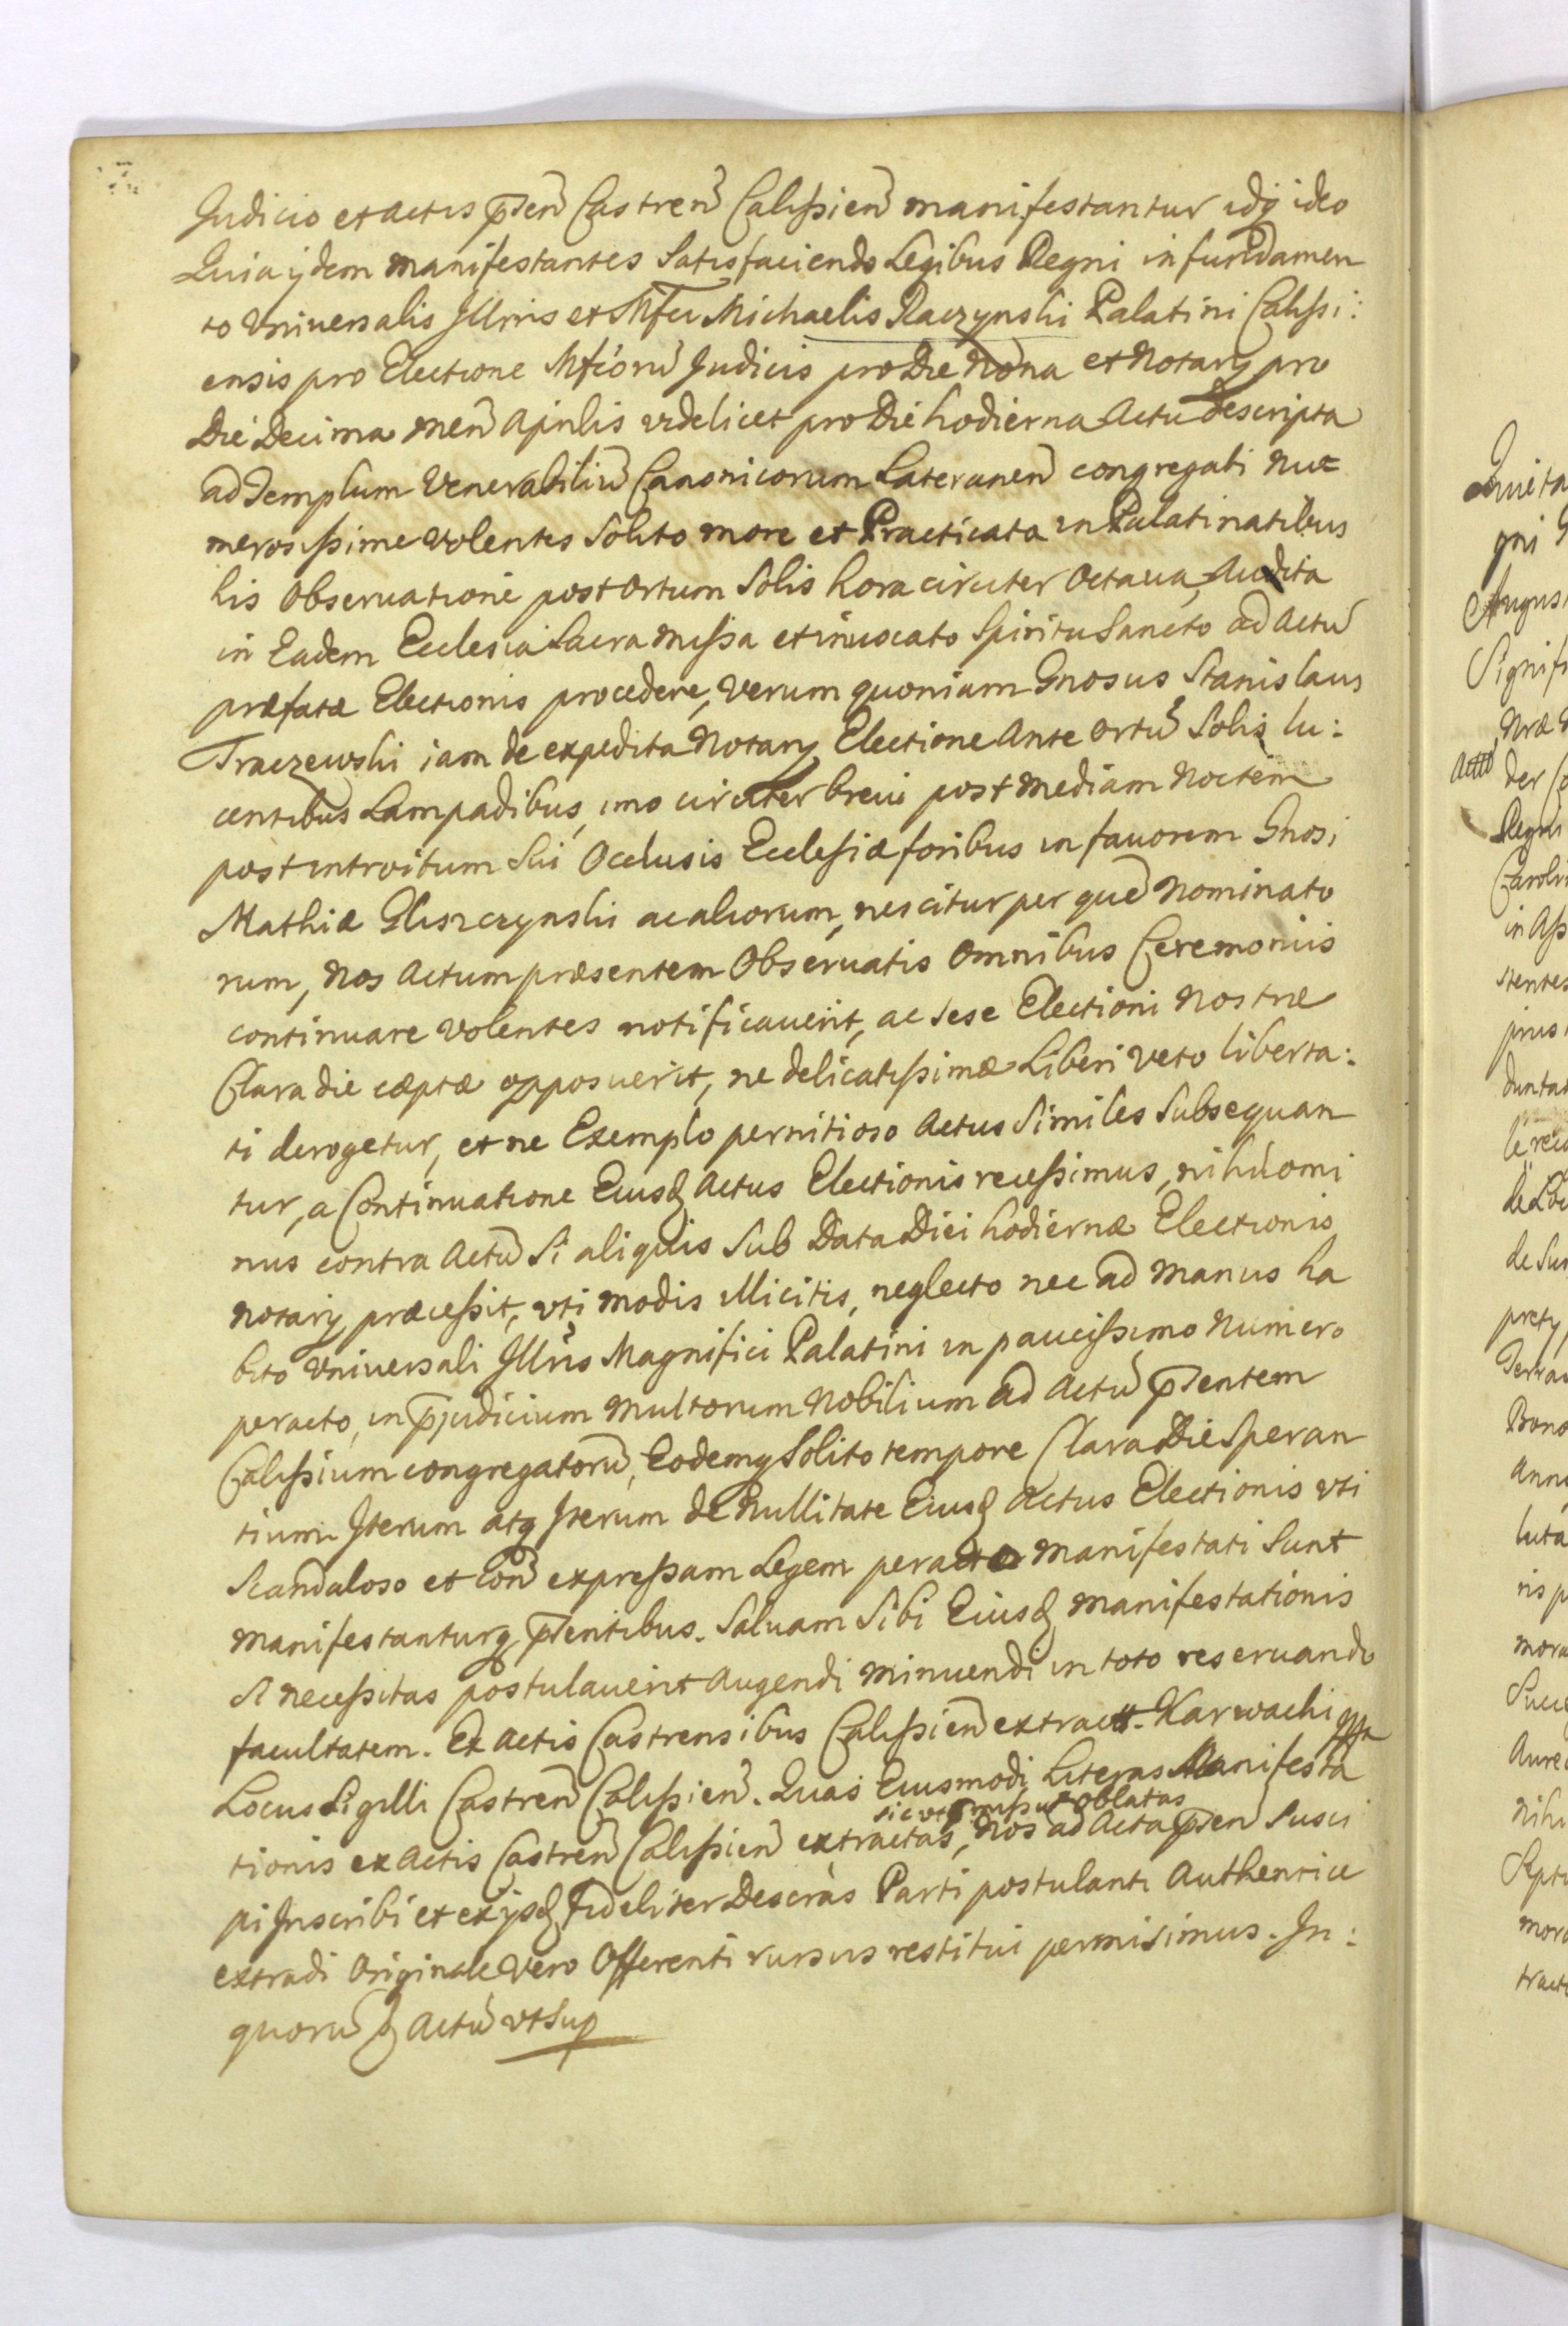 Judicio et actis p̃sen̄ Castren̄ Calissien̄ manifestantur idq̃ ideo
Quia ijdem manifestantes Satisfaciendo Legibus Regni in fundamen
to Vniuersalis Jllr̃is et Mf̃ci Michaelis Raczynski Palatini Calissi:
ensis pro Electione Mf̃corū Judicis pro Die Nona et Notarij pro
Die Decima men̄ Aprilis videlicet pro Die hodierna Actu descripta
ad Templum Venerabiliū Canonicorum Lateranen̄ congregati Nu:
merosissime volentes Solito more et Practicata in Palatinatibus
his Obseruatione post ortum Solis hora circiter Octaua, Audita
in Eadem Ecclesia Sacra missa et inuocato Spiritu Sancto ad actū
præfatæ Electionis procedere, Verum quoniam Gnosus Stanislaus
Traczewski iam de expedita Notarij Electione Ante ortū Solis lu:
centibus Lampadibus, imo circiter breui post mediam Noctem
post introitum Sui Occlusis Ecclesiæ foribus in fauorem Gnosi
Mathiæ Gliszczynski ac aliorum, nescitur per quē Nominato
rum, Nos Actum præsentem Obseruatis Omnibus Ceremoniis
continuare volentes notificauerit, ac sese Electioni Nostræ
Clara die cæptæ opposuerit, ne delicatissimæ Liberi Veto liberta:
ti derogetur, et ne Exemplo pernitioso Actus Similes Subsequan
tur, a Continuatione Eiusq̃ Actus Electionis recessimus, nihilomi
nus contra Actū Si aliquis Sub Data Diei hodiernæ Electionis
Notarij præcessit, vti modis illicitis, neglecto nec ad manus ha
bito Vniuersali Jllr̃is Magnifici Palatini in paucissimo Numero
peracto, in p̃judicium multorum Nobilium ad Actū p̃sentem
Calissium congregatorū, Eodemq̃ Solito tempore Clara Die Speran
tium Jterum atq̃ Jterum de Nullitate Eiusq̃ Actus Electionis vti
Scandaloso et con̄ expressam Legem peracto manifestati Sunt
Manifestanturq̃ p̃sentibus. Saluam Sibi Eiusq̃ Manifestationis
Si necessitas postulauerit Augendi minuendi in toto reseruando
facultatem. Ex Actis Castrensibus Calissien̄ extract. Karwacki
Locus Sigilli Castren̄ Calissien̄. Quas Eiusmodi Literas Manifesta
sic vt oblatas
tionis ex Actis Castren̄ Calissien̄ extractas, Nos ad Acta p̃sen̄ Susci
pi Jnscribi et ex ijsq̃ fideliter Descr̃as Parti postulanti Authentice
extradi Originale Vero Offerenti rursus restitui permisimus. Jn:
quorū q̃ Actū vt Sup